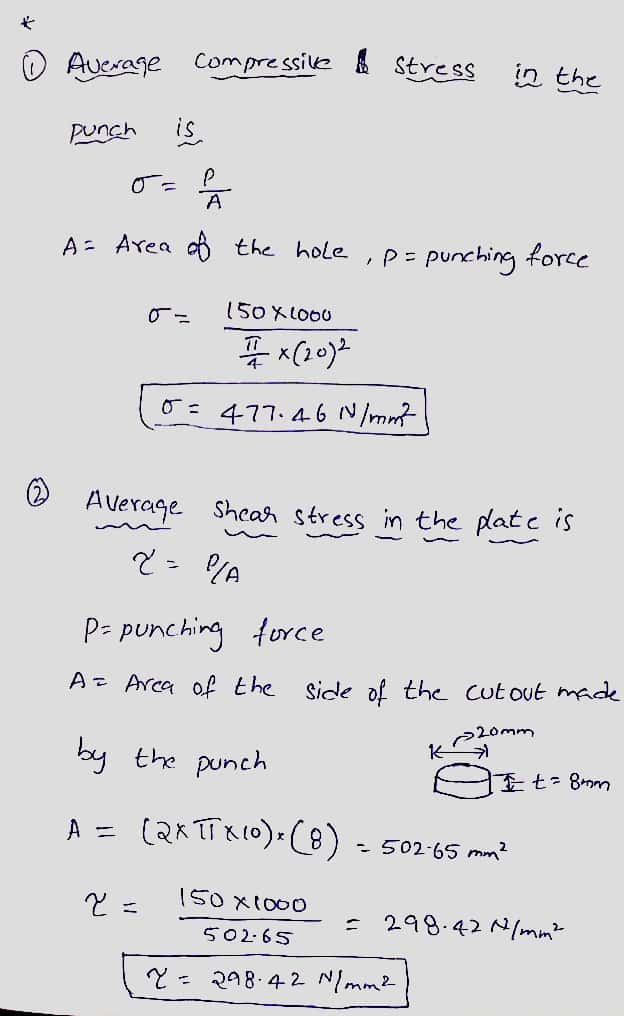 *
① Average Compressive & Stress in the
punch is
σ = P/A
A = Area of the hole, P = punching force
σ = 150 X 1000 / π/4 x (20)²
σ = 477.46 N/mm²
② Average shear stress in the plate is
τ = P/A
P = punching force
A = Area of the side of the cut out made
by the punch
20mm
t = 8mm
A = (2 x π x 10) x (8) = 502.65 mm²
τ = 150 x 1000 / 502.65 = 298.42 N/mm²
τ = 298.42 N/mm²